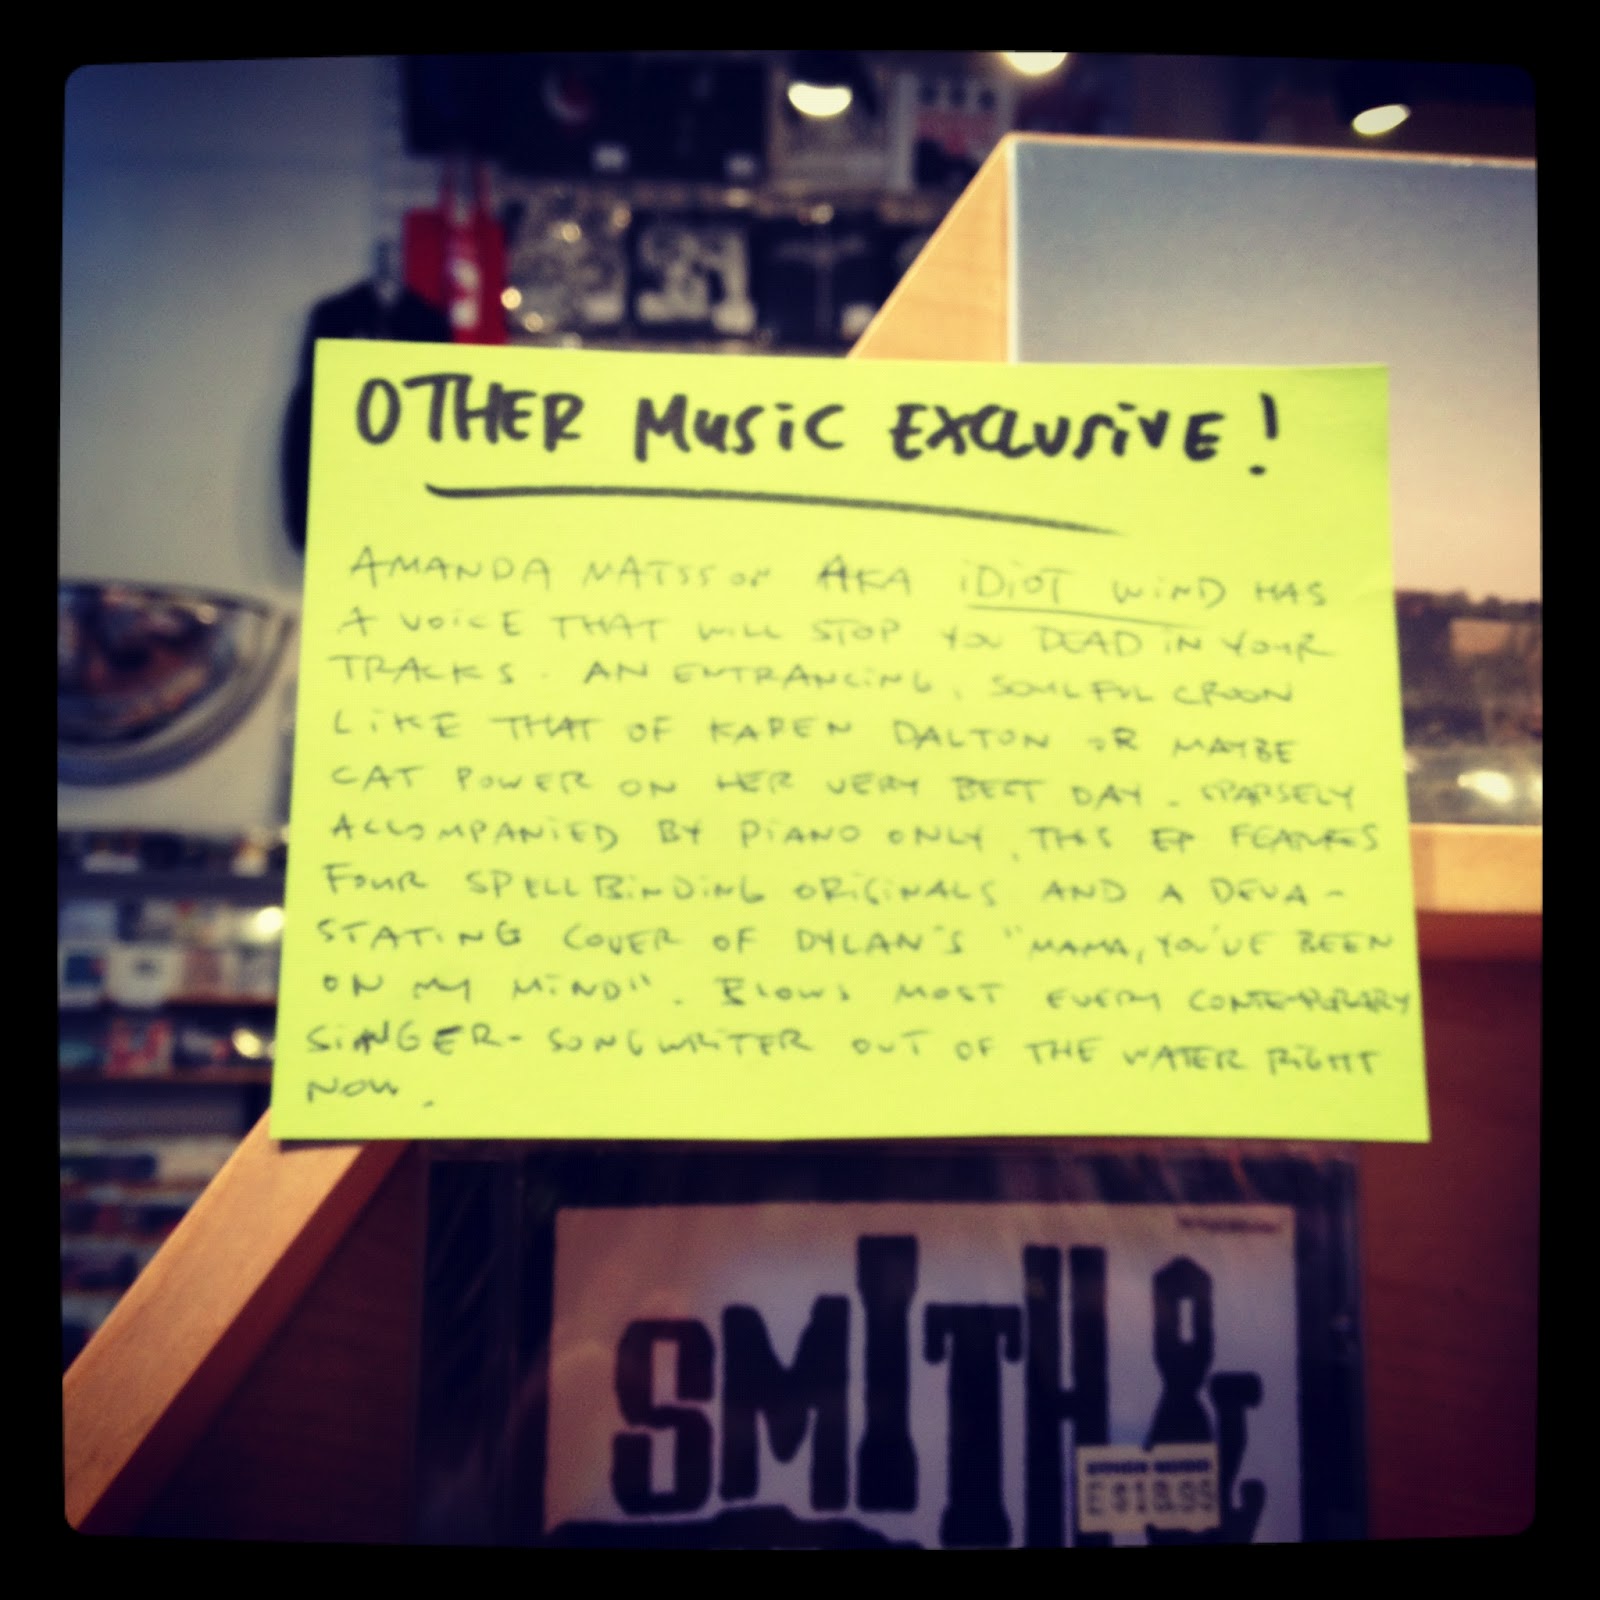 OTHER MUSIC EXCLUSIVE!
AMANDA MATSSON AKA IDIOT WIND HAS
A VOICE THAT WILL STOP YOU DEAD IN YOUR
TRACKS. AN ENTRANCING, SOULFUL CROON
LIKE THAT OF KAREN DALTON OR MAYBE
CAT POWER ON HER VERY BEST DAY. SPARSELY
ACCOMPANIED BY PIANO ONLY, THIS EP FEATURES
FOUR SPELLBINDING ORIGINALS AND A DEVA-
STATING COVER OF DYLAN'S "MAMA, YOU'VE BEEN
ON MY MIND". BLOWS MOST EVERY CONTEMPORARY
SINGER-SONGWRITER OUT OF THE WATER RIGHT
NOW.
SMITH &
OTHER MUSIC